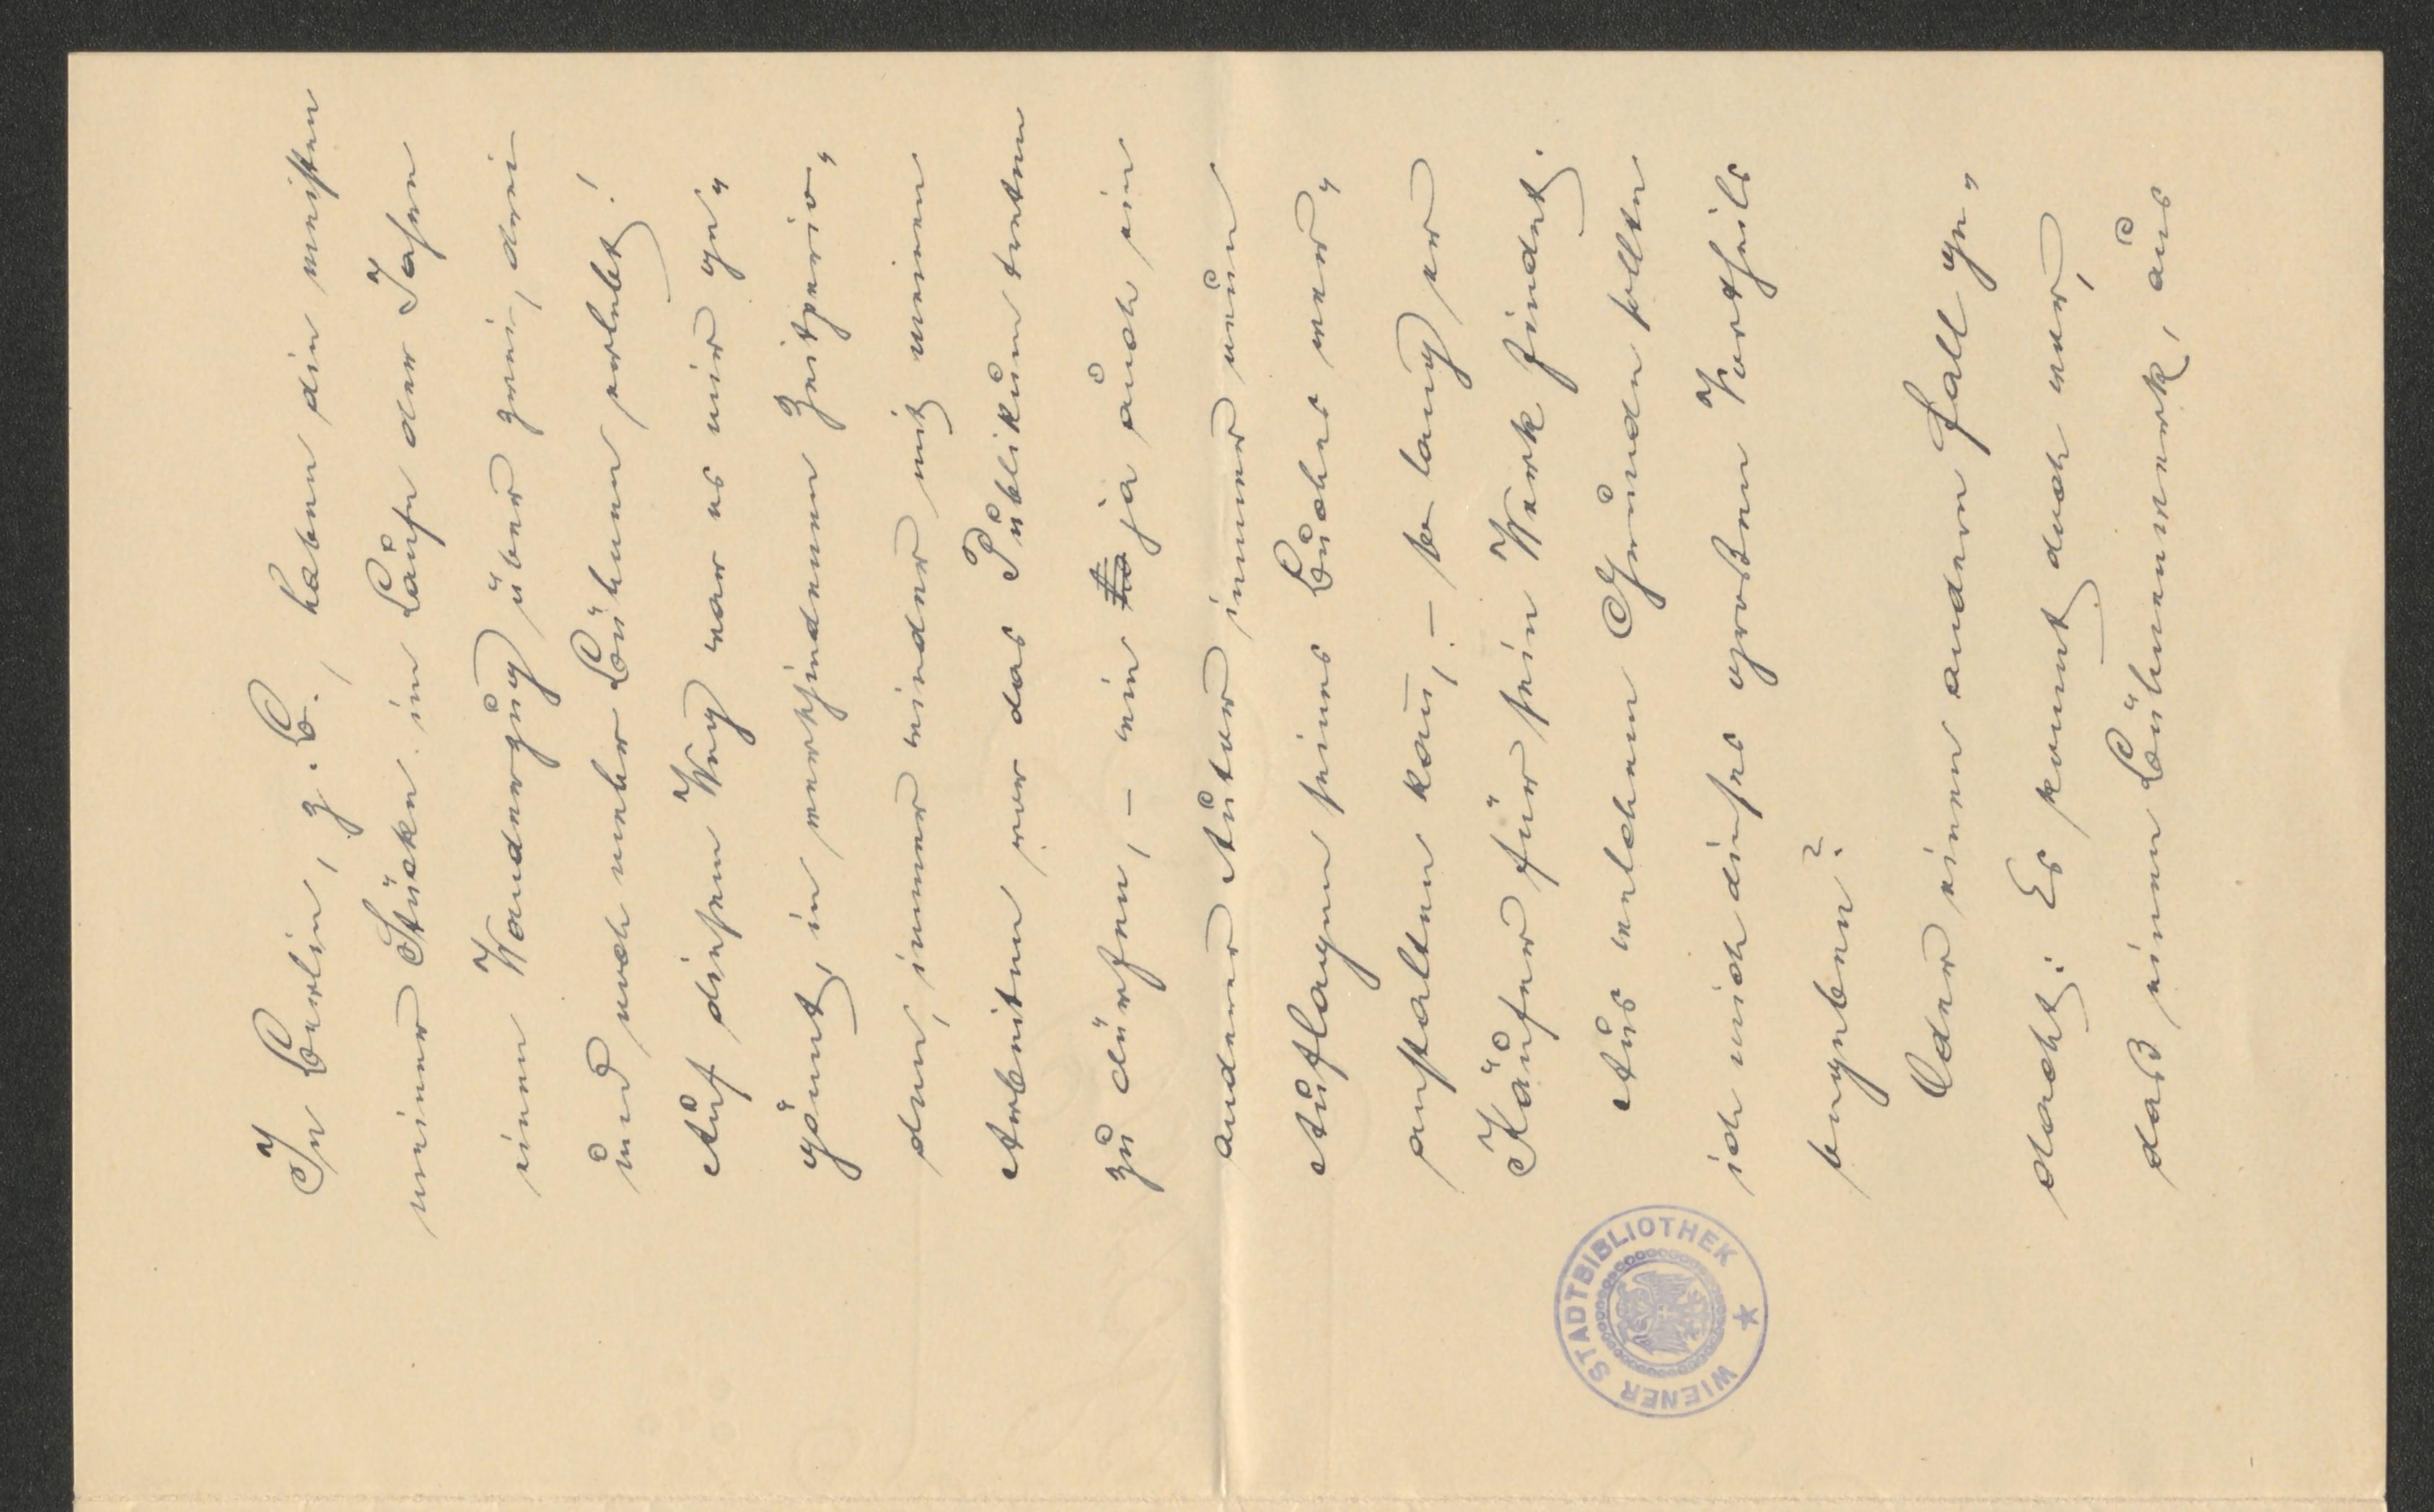 In Berlin, z. B., haben die meisten
meiner Stücke im Laufe der Jahre
einen Wanderzug über zwei, drei
und noch mehr Bühnen erlebt!
Auf diesem Weg war es mir ge„
gönnt, in verschiedenen Zeitperio„
den, immer wieder mit meinen
Arbeiten vor das Publikum treten
zu dürfen, – wie ja auch ein
anderer Autor immer neue
Auflagen seines Buches ver„
anstalten kann, – so lang er
Käufer für sein Werk findet.
Aus welchem Grunde sollte
ich mich dieses großen Vortheils
begeben?
Oder einen andern Fall ge„
dacht: Es kommt doch vor,
daß einem Bühnenwerk, aus
WIENER STADTBIBLIOTHEK